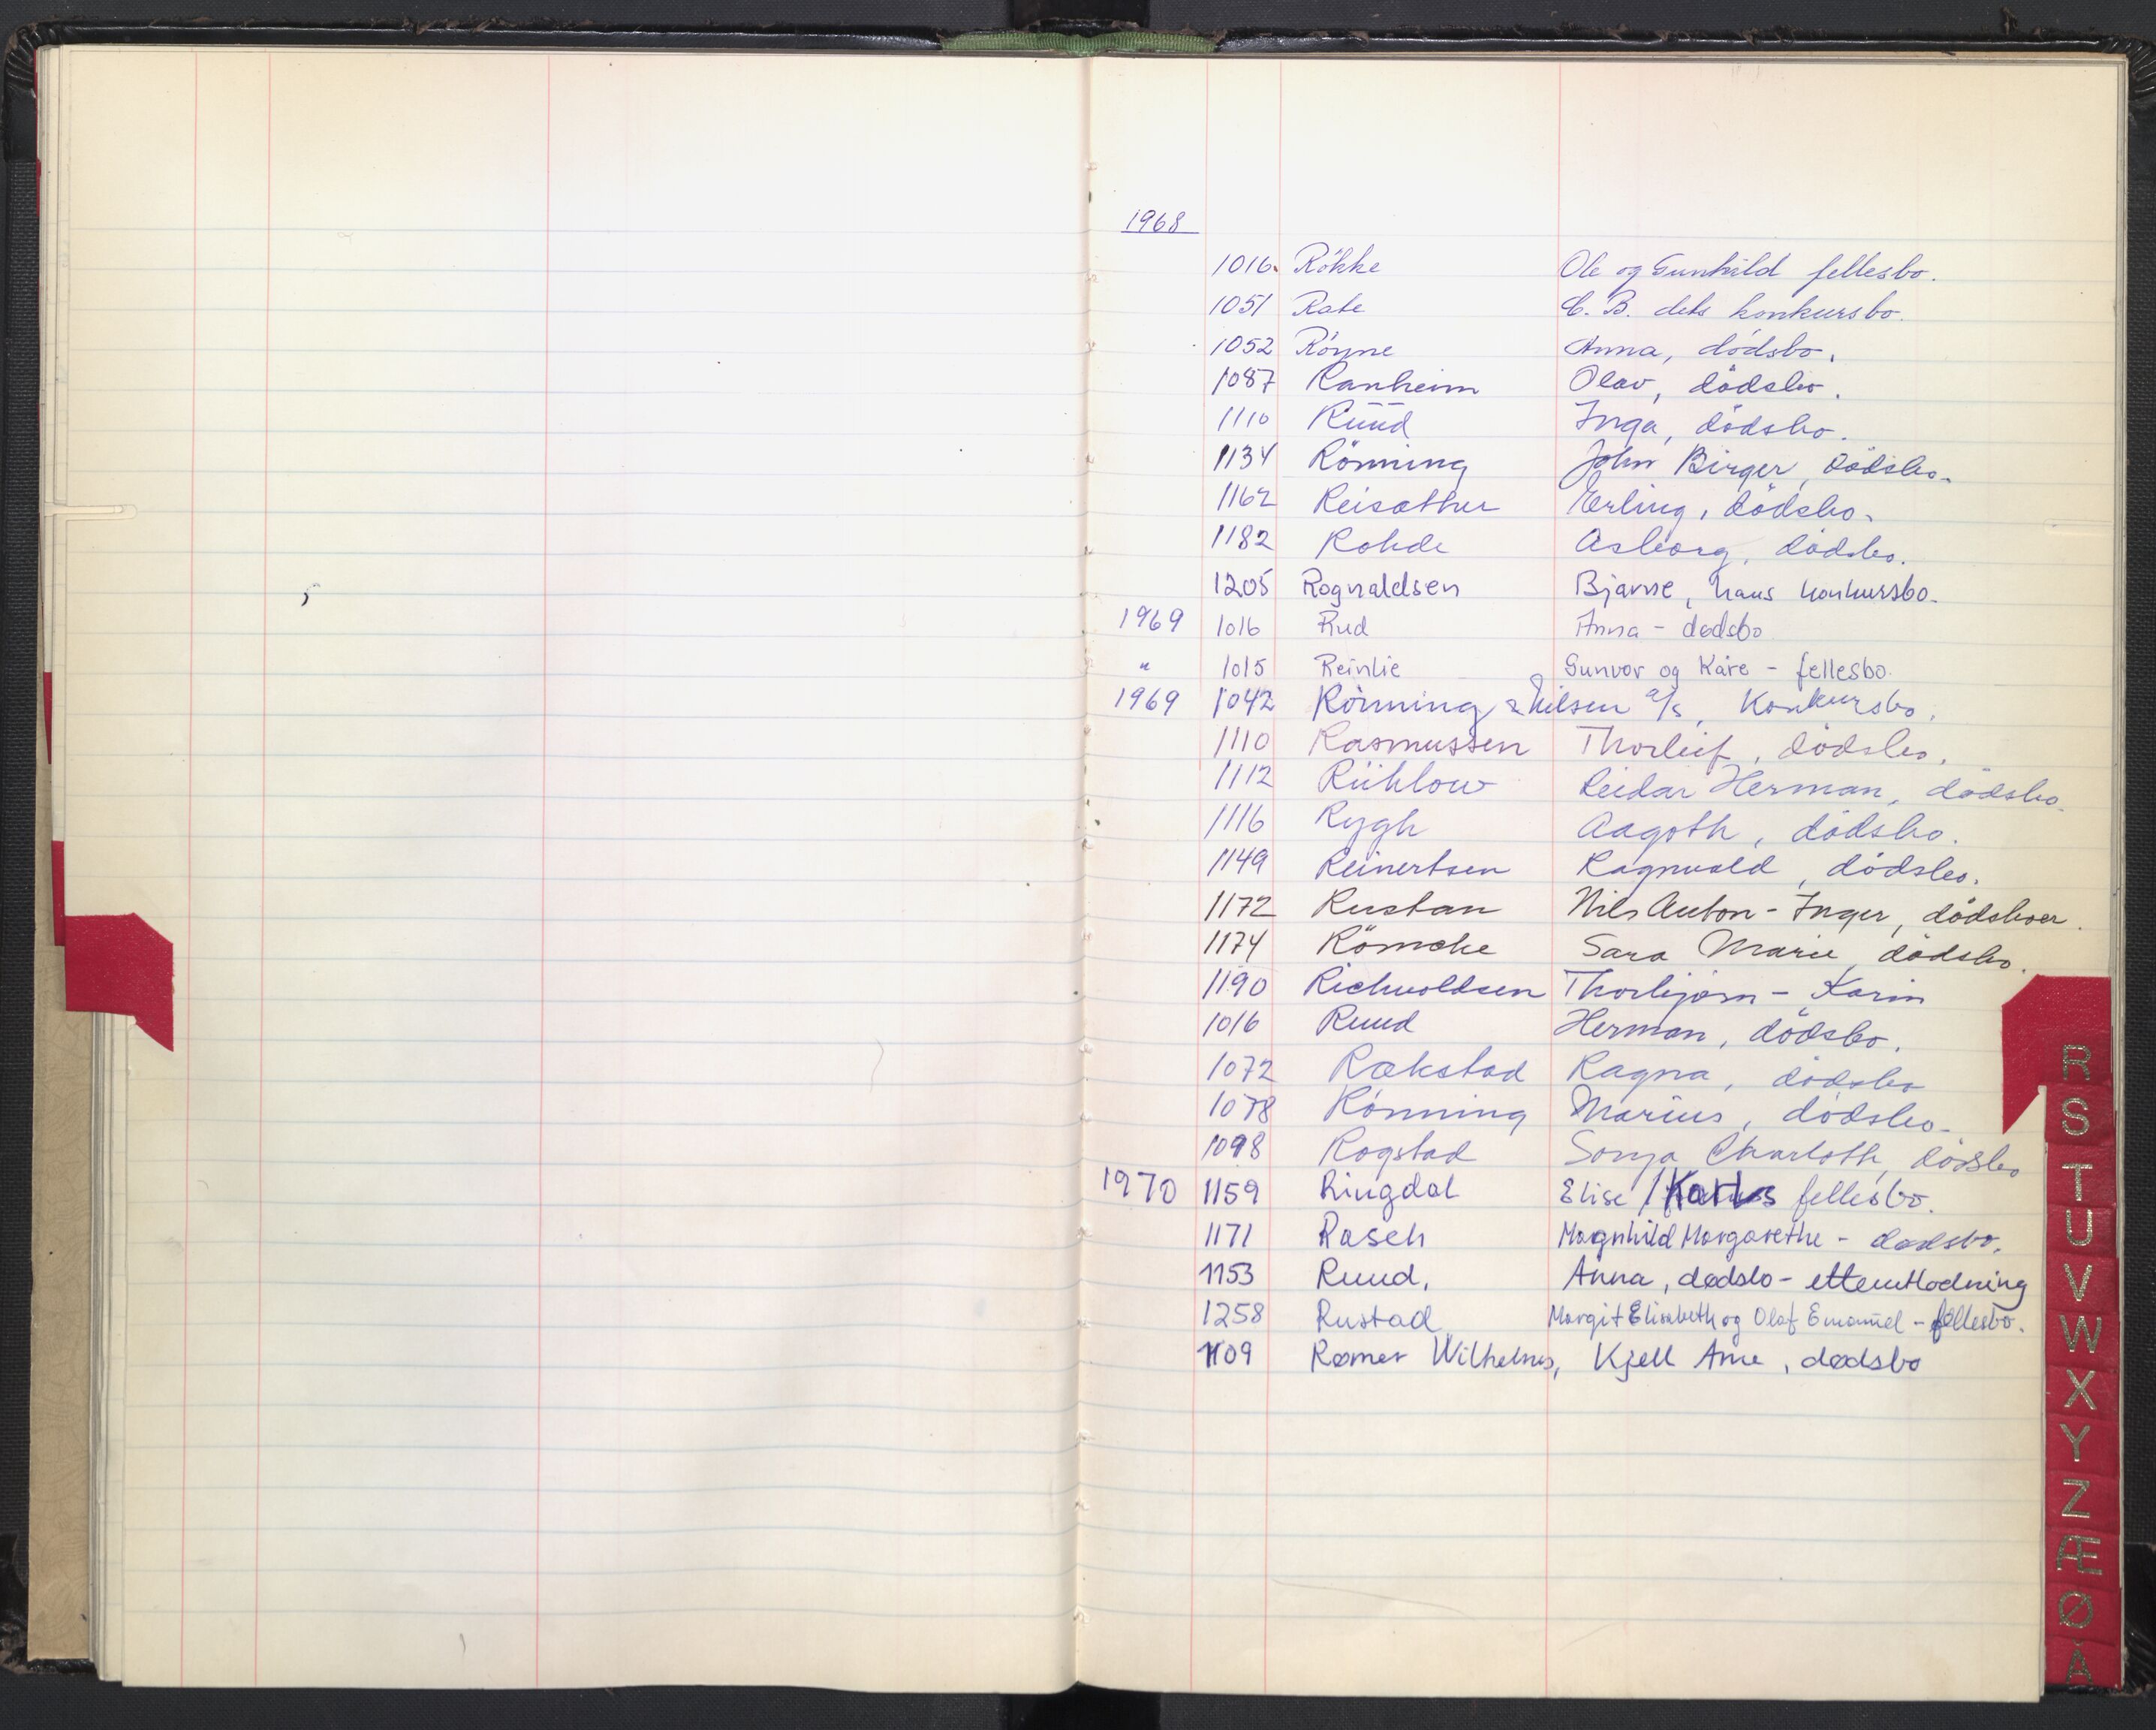 1968
1016. Rökke Ole og Gunhild fellesbo.
1051 Rate C.B. dets konkursbo.
1052 Rönne Anna, dödsbo.
1087 Ranheim Olav, dödsbo.
1110 Ruud Inga, dödsbo.
1134 Rönning John Birger, dödsbo.
1162 Reisæther Erling, dödsbo.
1182 Rohde Asborg, dödsbo.
1205 Rognaldsen Bjarne, hans konkursbo.
1969 1016 Rud Anna - dødsbo
" 1015 Reinlie Gunvor og Kåre - fellesbo.
1969 1042 Rönning & Nilsen a/s, Konkursbo.
1110 Rasmussen Thorleif, dödsbo.
1112 Rühlow Reidar Herman, dödsbo.
1116 Rygh Aagoth, dödsbo.
1149 Reinertsen Ragnvald, dödsbo.
1172 Rustan Nils Anton - Inger, dödsboer.
1174 Römcke Sara Marie, dödsbo.
1190 Richvoldsen Thorbjørn - Karin
1016 Ruud Herman, dödsbo.
1072 Rækstad Ragna, dödsbo
1078 Rönning Marius, dödsbo.
1098 Rogstad Sonja Charloth, dödsbo
1970 1159 Ringdal Elise / Karlus fellesbo.
1171 Rasch Magnhild Margarethe - dødsbo.
1153 Ruud, Anna, dødsbo - etterutlodning
1258 Rustad Margit Elisabeth og Olaf Emanuel - fellesbo.
1109 Rømer Wilhelms, Kjell Arne, dødsbo
R
S
T
U
V
W
X
Y
Z
Æ
Ø
Å